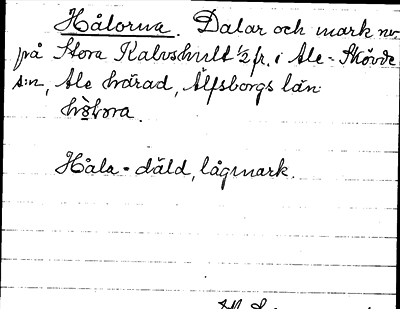 Hålorna. Dalar och mark nv.
på Stora Kalvshult ½ fr. i Ale-Skövde
s:n, Ale härad, Älfsborgs län.
Håla = däld, lågmark.